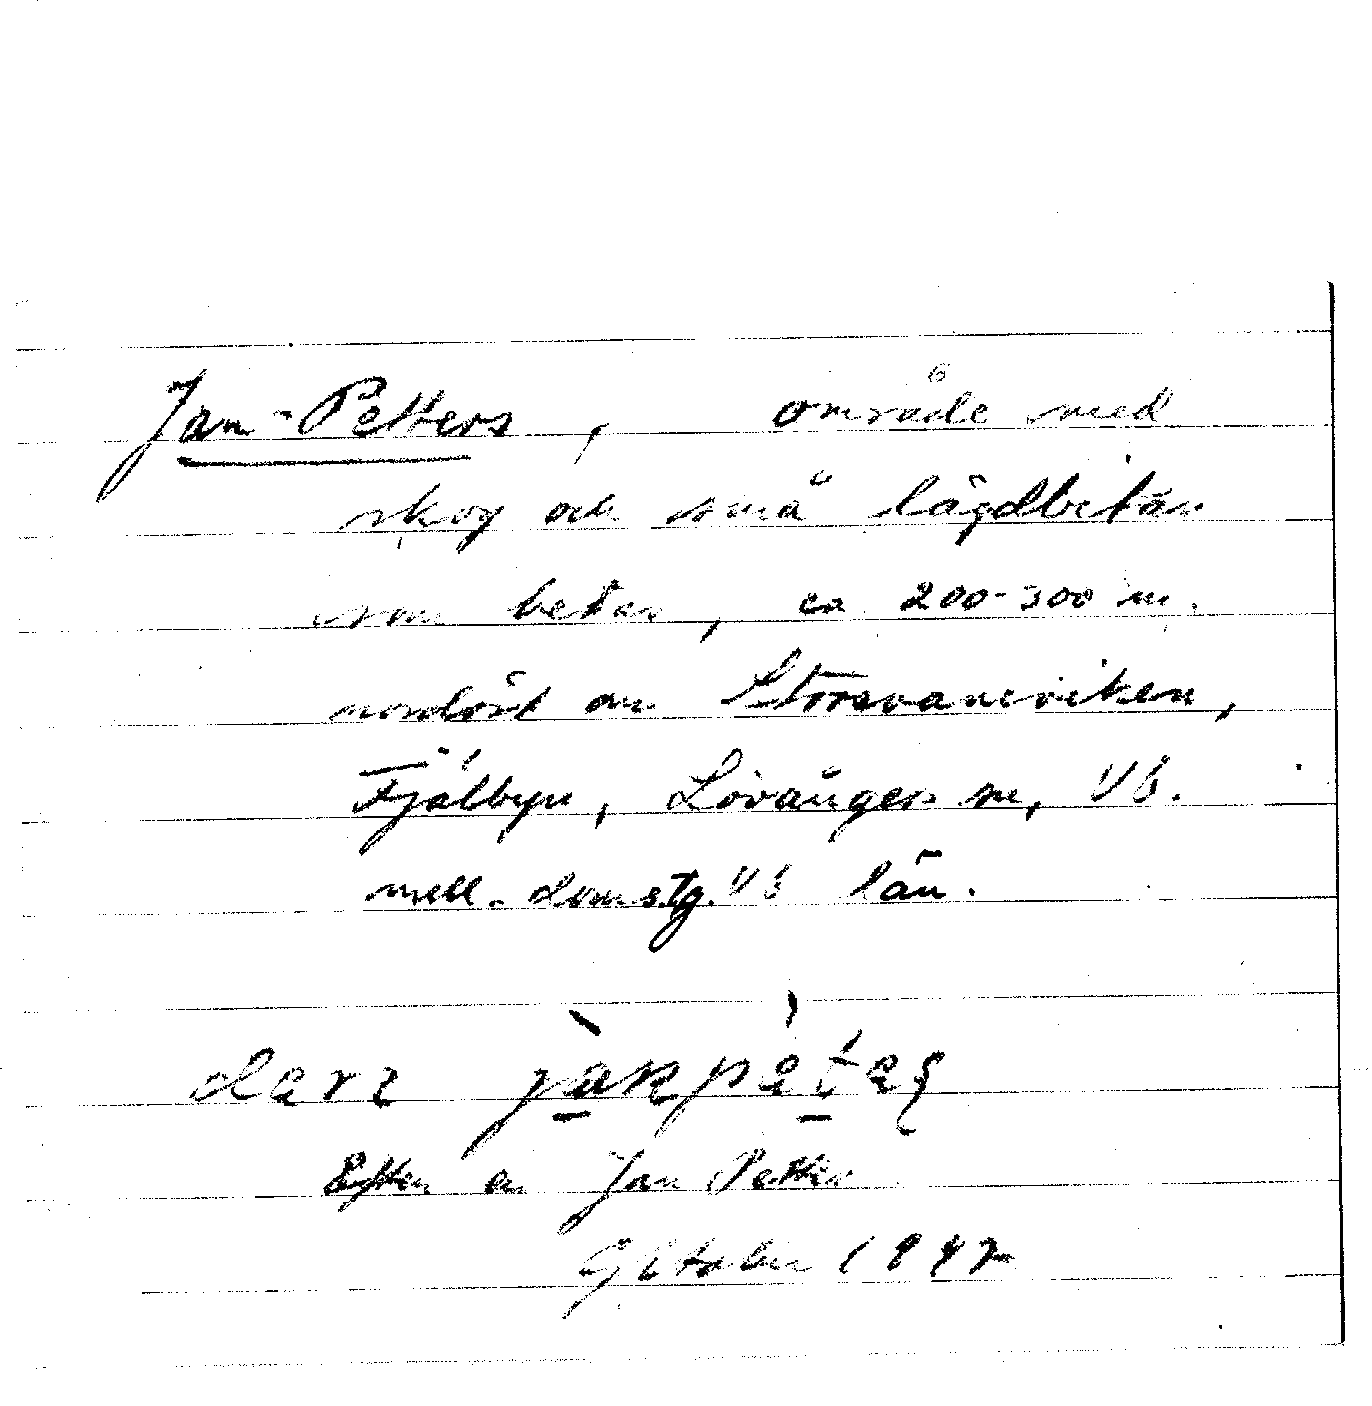 Jan-Petters, område med
skog och små lägdbitar
som betas, ca 200-300 m.
nordöst om Storsvaneviken,
Fjälbyn, Lövångers sn, Vb.
mell. domstg. Vb län.
Efter en Jan Petter
1947